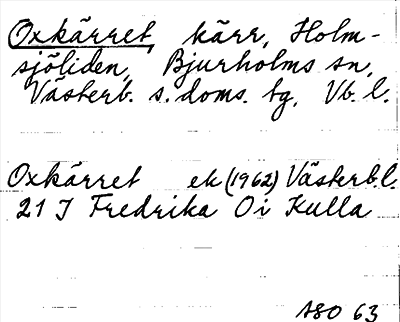 Oxkärret, kärr, Holm-
sjöliden, Bjurholms sn,
Västerb. s. doms. tg, Vb. l.
Oxkärret ek (1962) Västerb.l.
21 J Fredrika Oi Kulla
ASO 63